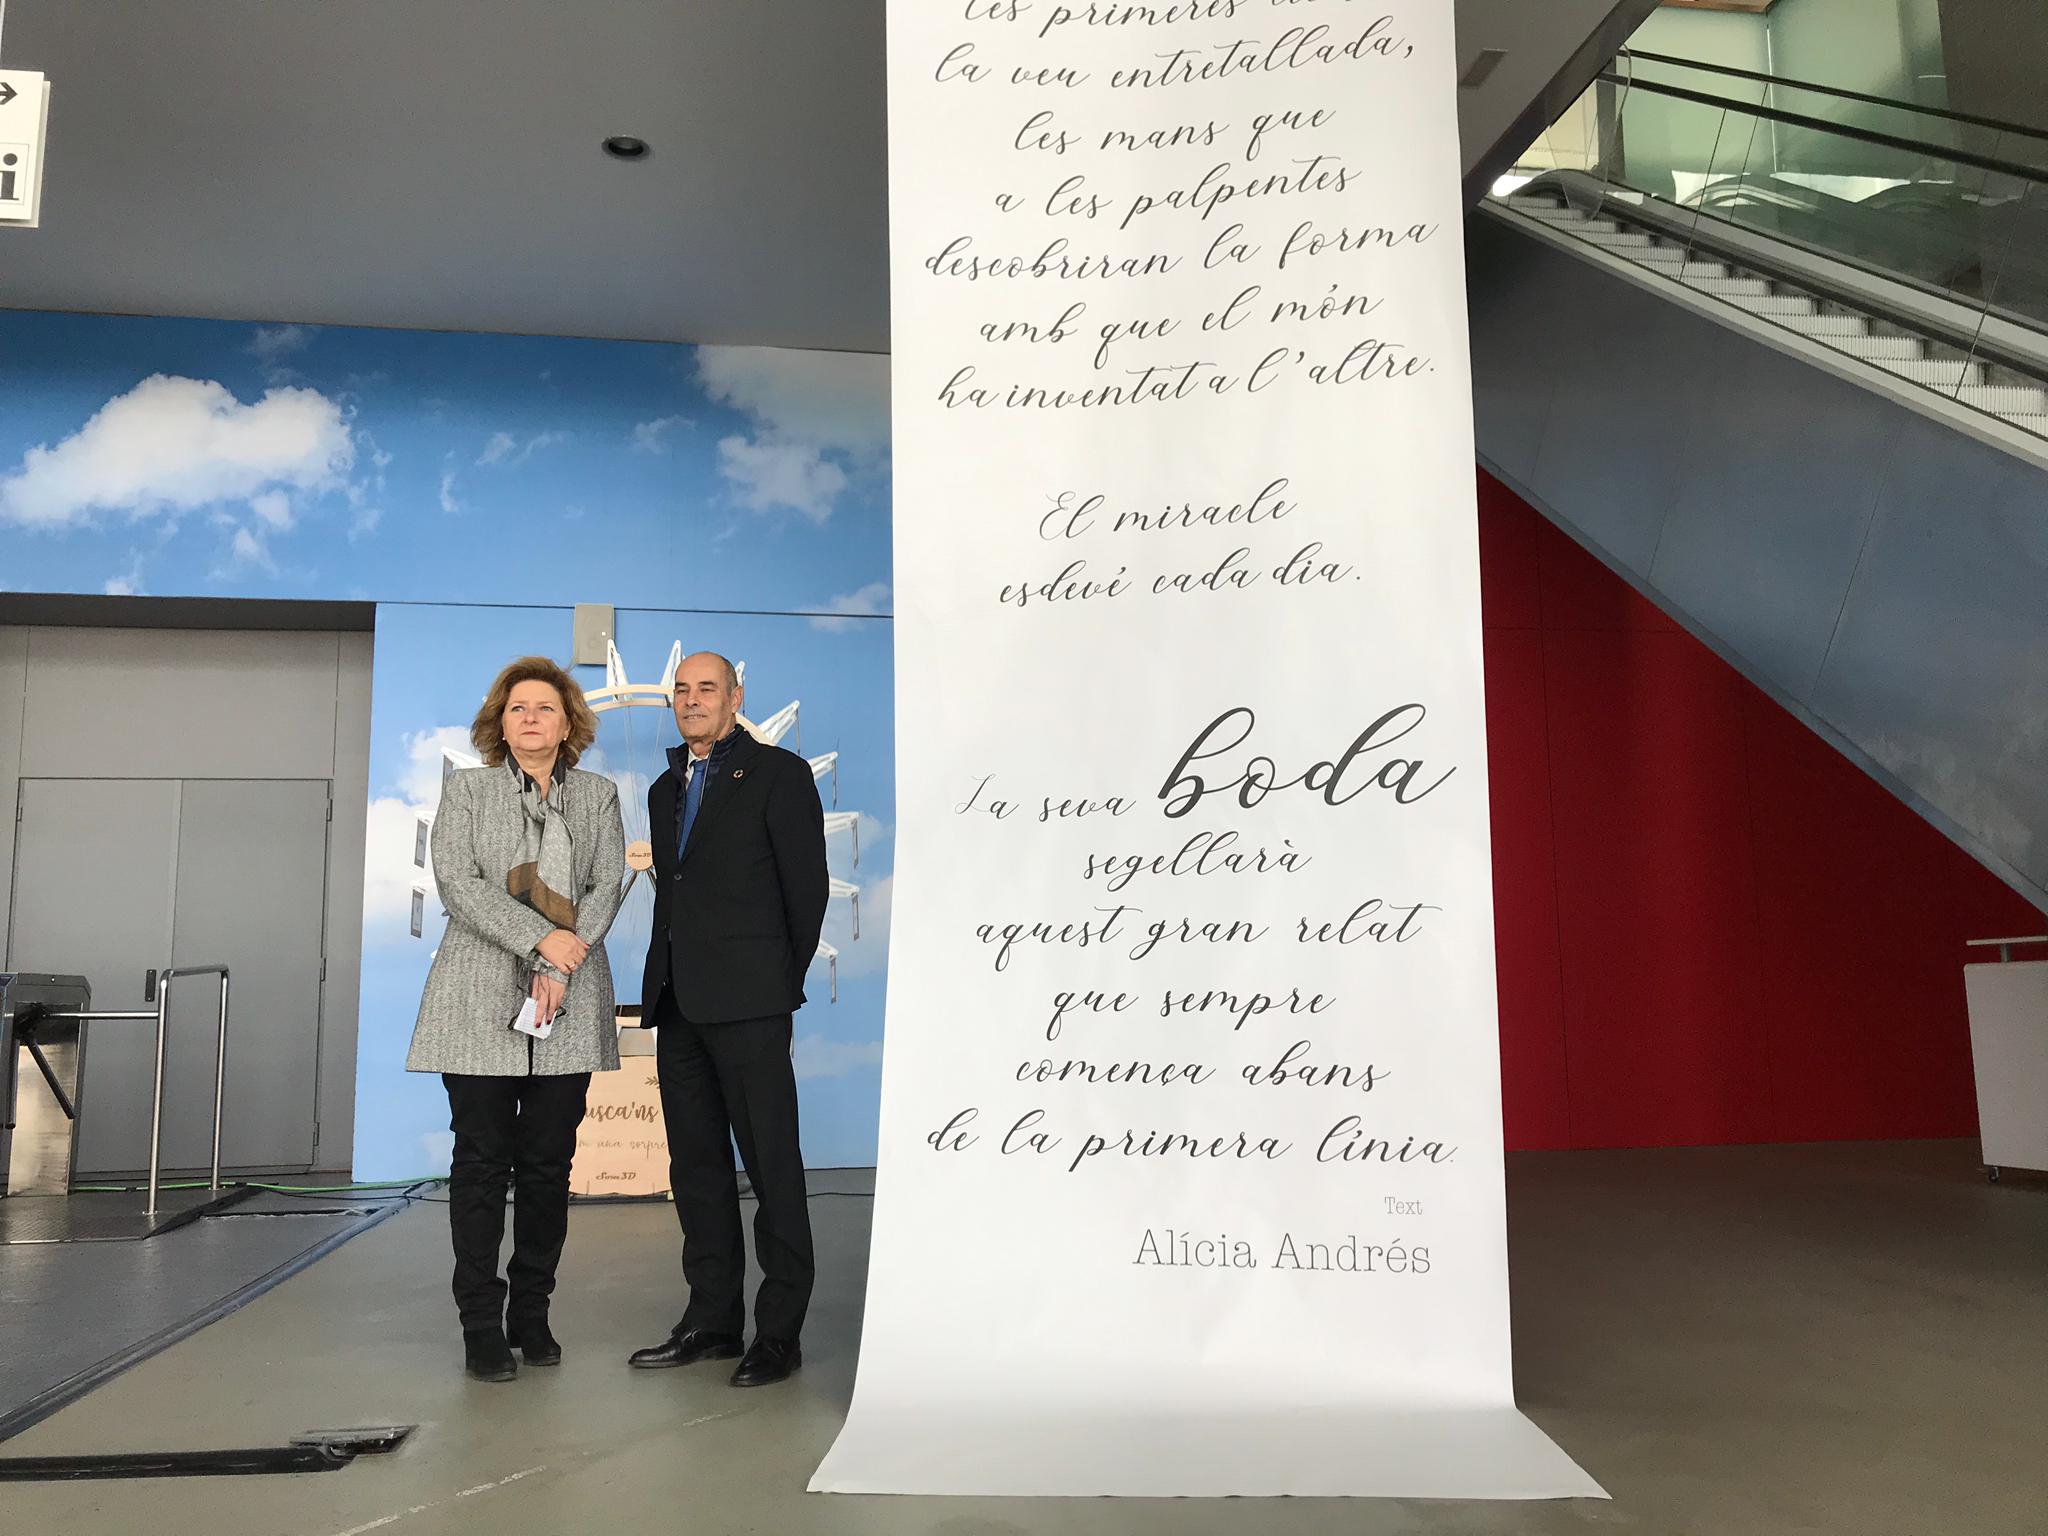 les primeres
la veu entretallada,
les mans que
a les palpentes
descobriran la forma
amb que el món
ha inventat a l'altre.
El miracle
esdevé cada dia.
La seva boda
segellarà
aquest gran relat
que sempre
comença abans
de la primera línia.
Text
Alícia Andrés
i
usca'ns
una
Sors3D